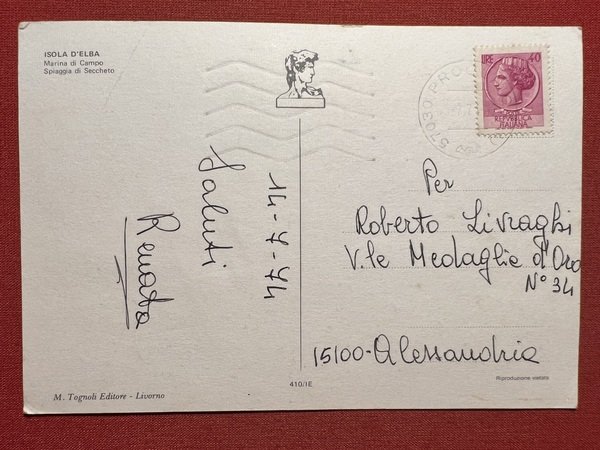 ISOLA D'ELBA
Marina di Campo
Spiaggia di Seccheto
14-7-74
Saluti
Renata
M. Tognoli Editore - Livorno
410/1E
LIRE 40
REPUBBLICA
ITALIANA
57030 PRO
Per
Roberto Livraghi
V.le Medaglie d'Oro
N° 34
15100-Alessandria
Riproduzione vietata